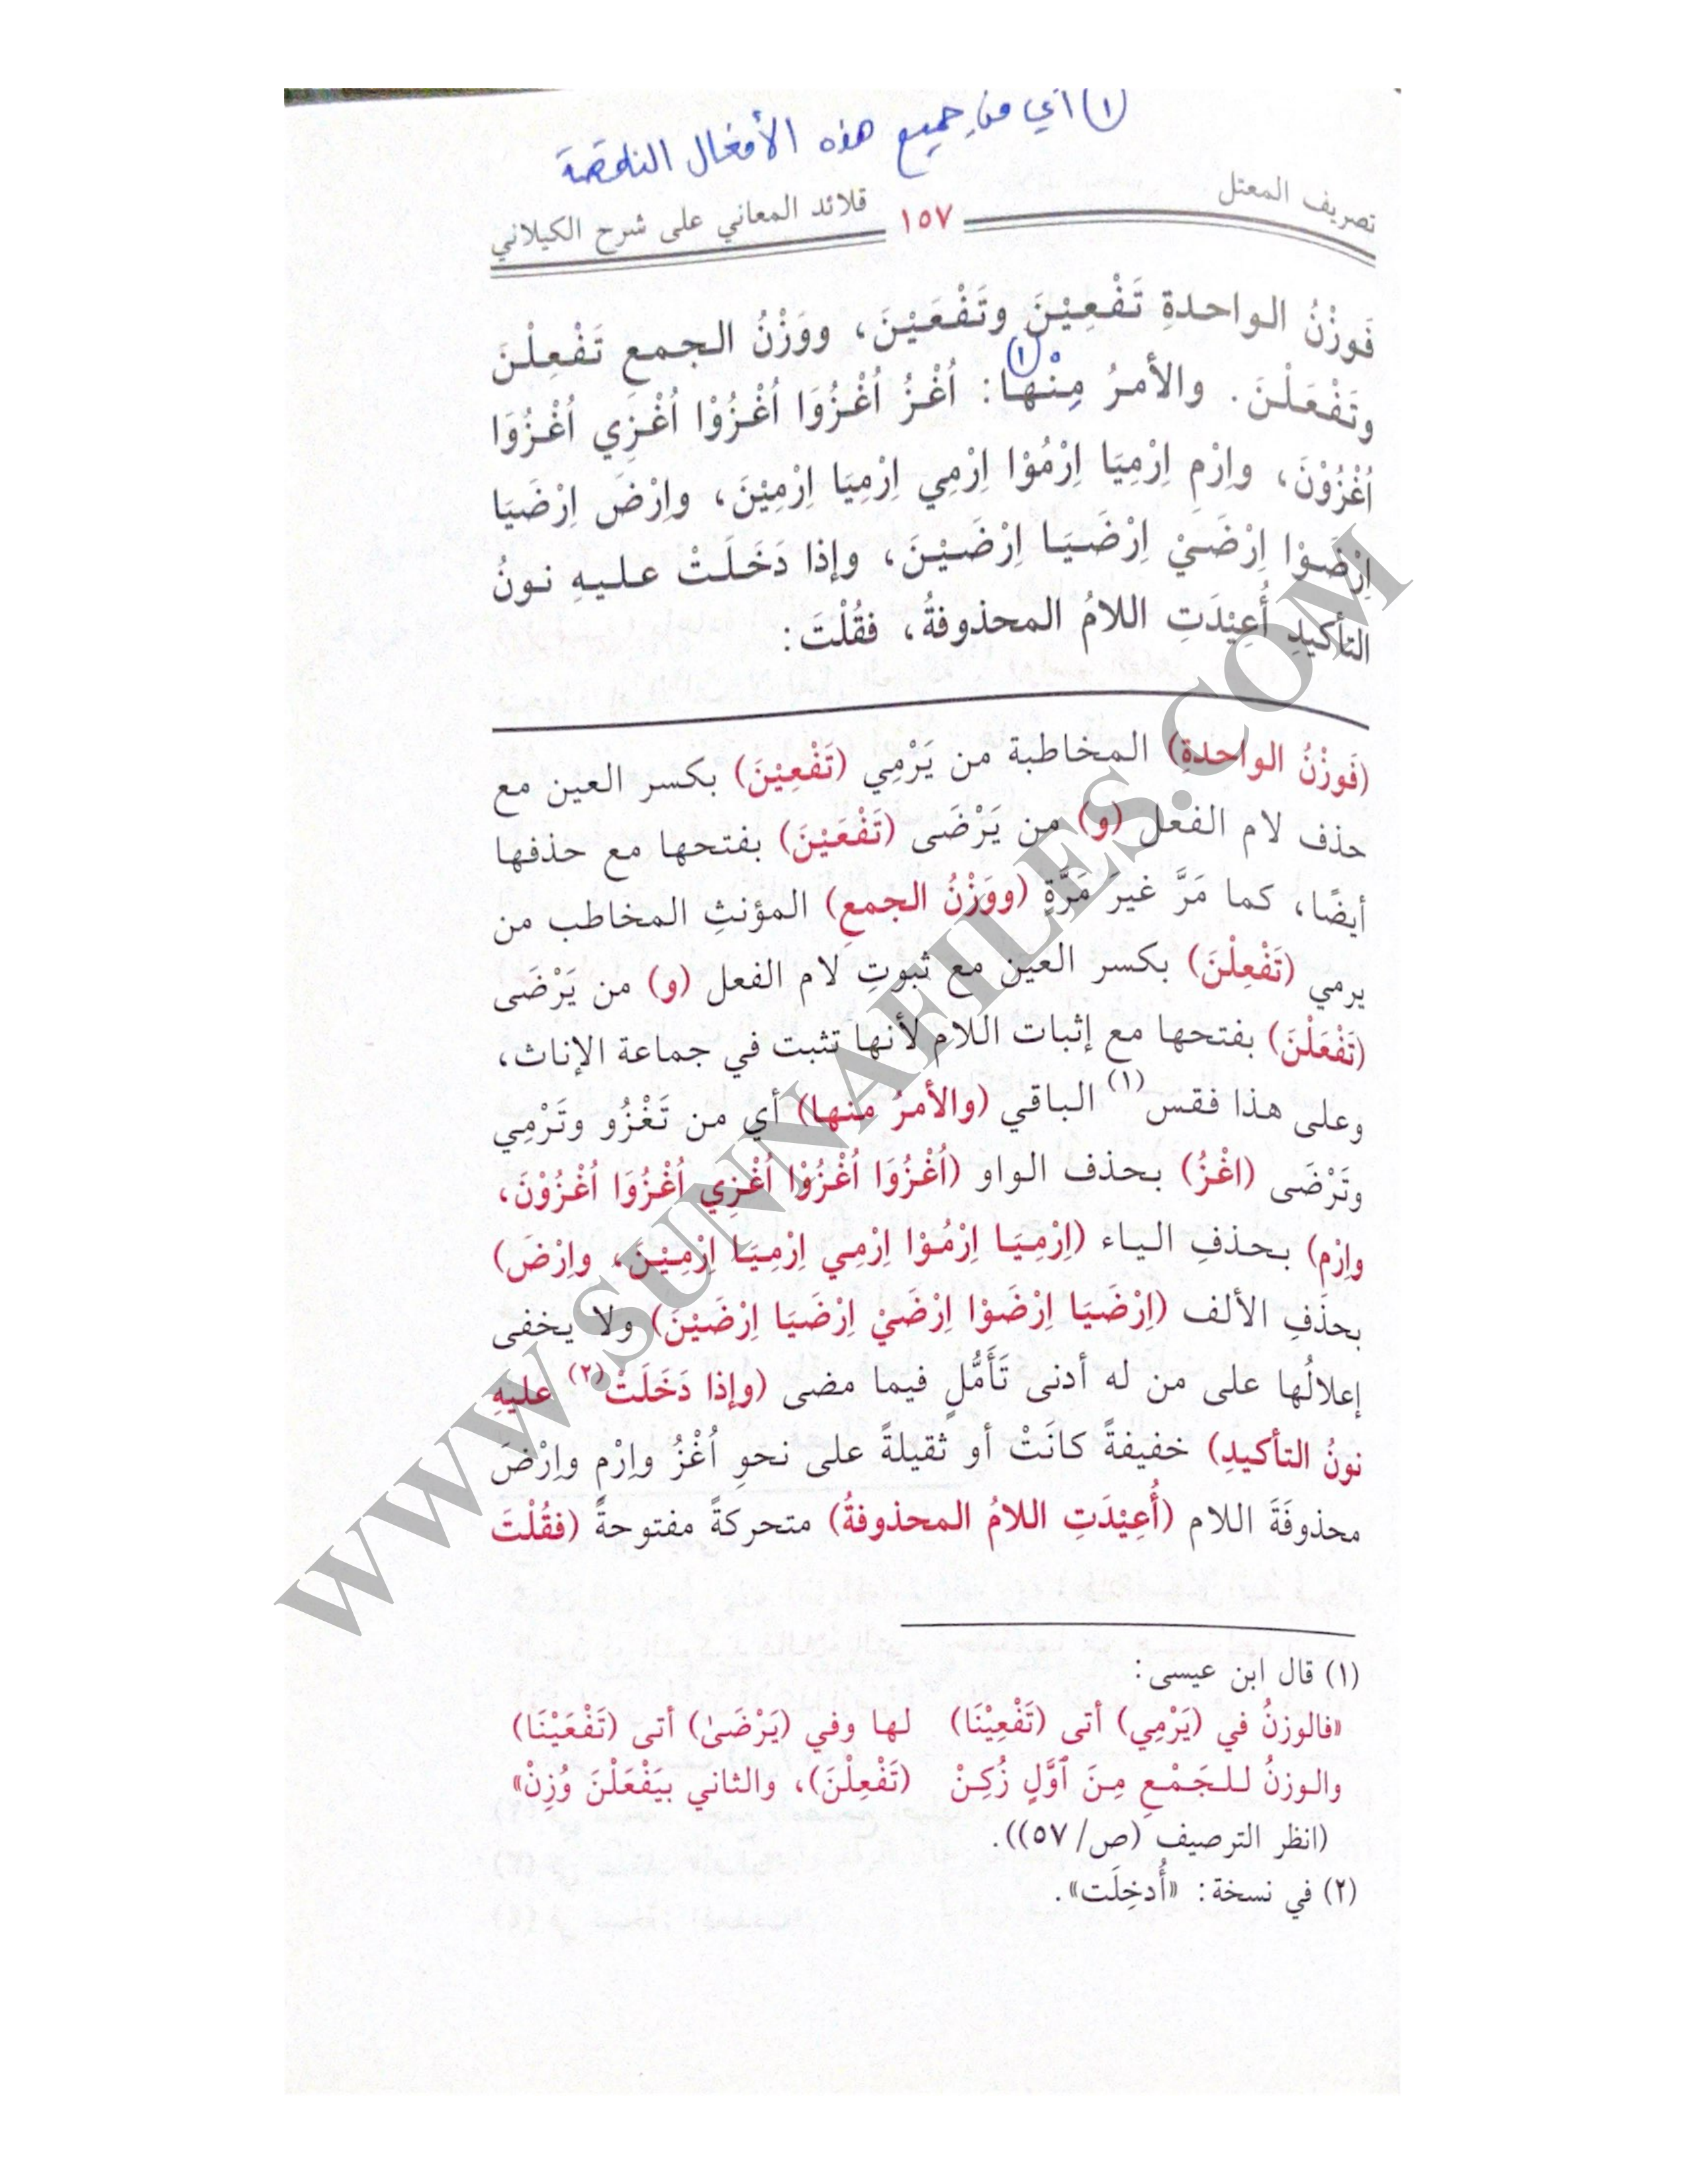 (١) أي من جميع هذه الأفعال الناقصة
تصريف المعتل ١٥٧ قلائد المعاني على شرح الكيلاني
فَوزْنُ الواحدةِ تَفْعِيْنَ وتَفْعَيْنَ، ووَزْنُ الجمعِ تَفْعِلْنَ
وتَفْعَلْنَ. والأمرُ مِنْهَا (١): اُغْزُ اُغْزُوَا اُغْزُوْا اُغْزِي اُغْزُوَا
اُغْزُوْنَ، واِرْمِ اِرْمِيَا اِرْمُوْا اِرْمِي اِرْمِيَا اِرْمِيْنَ، واِرْضَ اِرْضَيَا
اِرْضَوْا اِرْضَيْ اِرْضَيَا اِرْضَيْنَ، وإذا دَخَلَتْ عليهِ نونُ
التأكيدِ أُعِيْدَتِ اللامُ المحذوفةُ، فقُلْتَ:
(فَوزْنُ الواحدةِ) المخاطبة من يَرْمِي (تَفْعِيْنَ) بكسر العين مع
حذف لام الفعل (و) من يَرْضَى (تَفْعَيْنَ) بفتحها مع حذفها
أيضًا، كما مَرَّ غيرَ مَرَّةٍ (ووَزْنُ الجمعِ) المؤنثِ المخاطب من
يرمي (تَفْعِلْنَ) بكسر العين مع ثبوتِ لام الفعل (و) من يَرْضَى
(تَفْعَلْنَ) بفتحها مع إثبات اللام لأنها تثبت في جماعة الإناث،
وعلى هذا فقس(١) الباقي (والأمرُ منها) أي من تَغْزُو وتَرْمِي
وتَرْضَى (اغْزُ) بحذف الواو (اُغْزُوَا اُغْزُوْا اُغْزِي اُغْزُوَا اُغْزُوْنَ،
واِرْمِ) بحذفِ الياء (اِرْمِيَا اِرْمُوْا اِرْمِي اِرْمِيَا اِرْمِيْنَ، واِرْضَ)
بحذفِ الألف (اِرْضَيَا اِرْضَوْا اِرْضَيْ اِرْضَيَا اِرْضَيْنَ) ولا يخفى
إعلالُها على من له أدنى تَأَمُّلٍ فيما مضى (وإذا دَخَلَتْ(٢) عليهِ
نونُ التأكيدِ) خفيفةً كانَتْ أو ثقيلةً على نحوِ اُغْزُ واِرْمِ واِرْضَ
محذوفَةَ اللام (أُعِيْدَتِ اللامُ المحذوفةُ) متحركةً مفتوحةً (فقُلْتَ
(١) قال ابن عيسى:
«فالوزنُ في (يَرْمِي) أتى (تَفْعِيْنَا) لها وفي (يَرْضَىٰ) أتى (تَفْعَيْنَا)
والوزنُ للجَمْعِ مِنَ ٱوَّلٍ زُكِنْ (تَفْعِلْنَ)، والثاني بيَفْعَلْنَ وُزِنْ»
(انظر الترصيف (ص/ ٥٧)).
(٢) في نسخة: «أُدخِلَت».
WWW.SUNNAFILES.COM